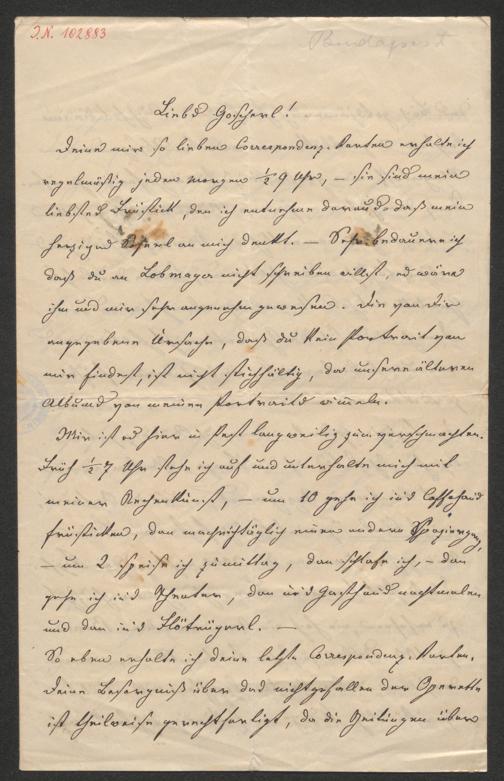 I.N. 102883
Budapest
Liebes Goscherl!
Deine mir so lieben Correspondenz-Karten erhalte ich
regelmäßig jeden Morgen ½ 9 Uhr, – sie sind mein
liebstes Früstück, den ich entnehme daraus daß mein
herziges an mich denkt. – Sehr bedauere ich
daß du an Lobmayer nicht schreiben willst, es wäre
ihm und mir sehr angenehm gewesen. Die von Dir
angegebene Ursache, daß du kein Portrait von
mir findest, ist nicht stichhältig, da unsere älteren
Albums von meinen Portraits wimmeln.
Mir ist es hier in Pest langweilig zum verschmachten.
Früh ½ 7 Uhr stehe ich auf und unterhalte mich mit
meiner – um 10 gehe ich in's Caffehaus
früstücken, dan nachträglich einen andern Spaziergang,
– um 2 speise ich zumittag, dan schlafe ich, – dan
gehe ich in's Theater, dan in's Gasthaus nachtmalen
und dan in's –
So eben erhalte ich deine letzte Correspondenz-Karten.
Deine Besorgniß über das nichtgefallen der Operette
ist theilweise gerechtfertigt, da die Zeitungen über